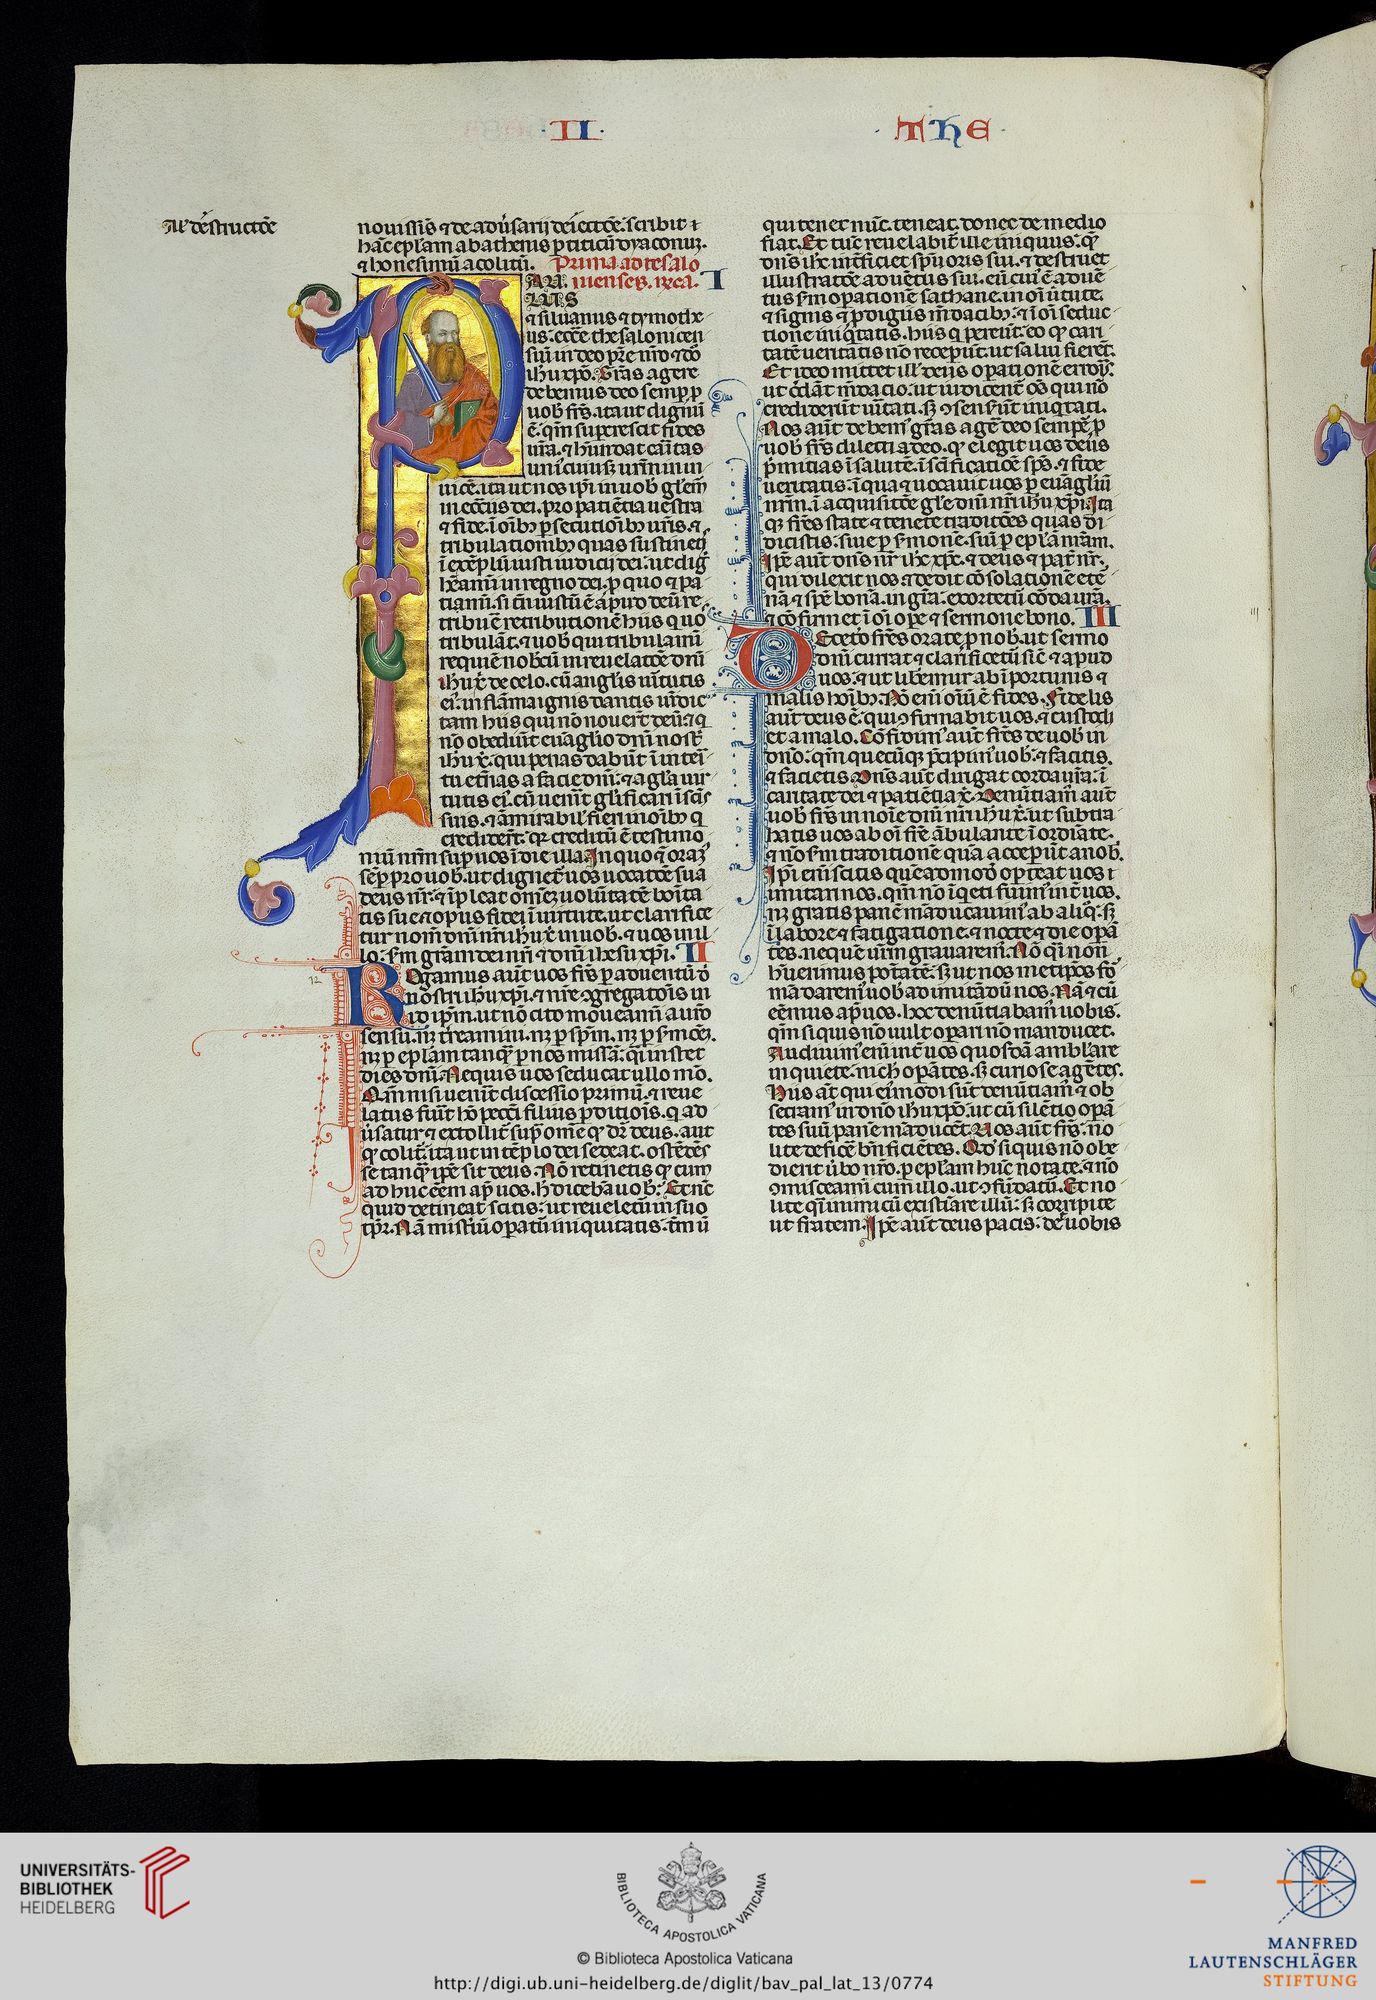 · II · · THE ·
al' destructõe
nouissĩs ⁊ de adũsarij dei ectõe. scribit ⁊
hãc eplãm ab athenis p titicũ dyaconuz.
⁊ honesimũ acolitũ. Prima ad tesalo
AU nicenses. I
LUS
⁊ siluanus ⁊ tymothe
us: ecce thesalonicen
siũ in deo pr̃e nr̃o ⁊ dõ
ihu xpõ. Grãs agere
debemus deo semp p
uob fr̃s. ita ut dignũ
ẽ. qm̃ supcrescit fides
ur̃a. ⁊ hũndat caritas
uniꝰcuiusqꝫ ur̃m in in
uicẽ. ita ut nos ip̃i in uob gl̃iem̃
in ecc̃iis dei. pro patiẽtia uestra
⁊ fide. ĩ oĩbꝫ psecutioĩbꝫ ur̃is. ⁊
tribulationibꝫ quas sustinetꝭ
ĩ exẽplũ iusti iudicij dei. ut dig
hẽamĩ in regno dei. p quo ⁊ pa
timinĩ. si tñ iustũ ẽ apud deũ re
tribuẽ retributionẽ hiis quo
tribulãt. ⁊ uob qui tribulamĩ
requiẽ nobcũ in reuelatõe dnĩ
ihu xp̃ de celo. cũ anglis uĩtutis
eiꝰ. in flãma ignis dantis uĩdic
tam hiis qui nõ nouerũt deũ. ⁊ q
nõ obediũt euãglio dnĩ nostr̃
ihu xp̃. qui penas dabũt ĩ inteĩ
tu etñas a facie dnĩ. ⁊ a glã uir
tutis eiꝰ. cũ uenit glificari ĩ scĩs
suis. ⁊ ãmirabil̃ fieri in oĩbꝫ q
crediderũt. qꝛ creditũ ẽ testimo
niũ nr̃m sup uos ĩ die illa. In quo ⁊ oraꝰ
sẽp pro uob. ut dignet̃ uos uocatõe sua
deus nr̃. ⁊ ĩpleat omẽꝫ uolũtatẽ boita
tis sue ⁊ opus fidei ĩ uirtute. ut clarifice
tur nom̃ dnĩ nr̃i ihu xp̃ in uob. ⁊ uos in il
lo: sm̃ grãm dei nr̃i ⁊ dnĩ ihesu xpĩ. II
Rogamus aut̃ uos fr̃s p aduentũ dĩ
nostri ihu xpĩ. ⁊ nr̃e ꝯgregatoĩs in
id ip̃m. ut nõ cito moueamĩ a uro
sensu. nꝫ tr̃eamini. nꝫ p spm̃. nꝫ p smoẽꝫ.
nꝫ p eplãm tanqꝫ p nos missã: qi instet
dies dnĩ. Ne quis uos seducat ullo mõ.
Qm̃ nisi uenĩt discessio primũ. ⁊ reue
latus fuit̃ hõ peccĩ filius pditioĩs. q ad
ũsatur ⁊ extollit̃ sup omẽ qd̃ dr̃ deus. aut
qd̃ colit̃. ita ut in tẽplo dei sedeat. ostẽdẽs
se tanqꝫ ip̃e sit deus. Nõ retinetis qd̃ cum
ad huc eẽem ap̃ uos. h̃ dicebã uob̃: Et nc̃
quid detineat scitis: ut reueletũ in suo
tp̃r. Nã mistiũ opatũ iniquitatis. tm̃ ũ
qui tenet nũc. teneat. donec de medio
fiat. Et tũc reuelabit̃ ille iniquus. qẽ
dns̃ ihc int̃ficiet spũ oris sui. ⁊ destruet
illustratõe aduẽtus sui. eũ cuiꝰ ẽ aduẽ
tus sm̃ opationẽ sathane. in oĩ ũtute.
⁊ signis ⁊ pdigiis m̃dacibꝫ: ⁊ ĩ oĩ seduc
tione iniqtatis. hiis q pereũt. eo qd̃ cari
tatẽ ueritatis nõ receperũt. ut salui fierẽt.
Et ideo mittet ill̃ deus opationẽ erroꝵ:
ut cr̃dãt m̃dacio. ut iudicent oẽs qui nõ
crediderũt uĩtati. sꝫ ꝯsensũt iniqtati.
Nos aut̃ debemꝰ grãs agẽ deo semp p
uob fr̃s dilecti a deo. qd̃ elegit uos deus
primitias ĩ salutẽ. ĩ scĩficatiõe sp̃s. ⁊ fide
ueritatis. ĩ qua ⁊ uocauit uos p euãgliũ
nr̃m. ĩ acquisitõe glẽ dnĩ nr̃i ihu xpĩ. Ita
qꝫ fr̃es state ⁊ tenete traditões quas di
dicistis. siue p smonẽ. siũ p eplãm nr̃am.
Ip̃e aut̃ dns̃ nr̃ ihc xpc. ⁊ deus ⁊ pat̃ nr̃.
qui dilexit nos ⁊ dedit cõsolationẽ ete
nã ⁊ spẽ bonã. in grã. exortetũ corda ura.
⁊ cõfirmet ĩ oĩ ope ⁊ sermone bono. III
De cetõ fr̃es orate p nob̃. ut sermo
dnĩ currat ⁊ clarificetũ sic̃ ⁊ apud
uos. ⁊ ut libemur ab ĩportunis ⁊
malis hoĩbꝫ. Nõ enĩ oĩuĩ ẽ fides. Fidelis
aut̃ deus ẽ. qui ꝯfirmabit uos. ⁊ custodi
et a malo. Cõfidimꝰ aut̃ fr̃es de uob in
dnõ. qm̃ quecũqꝫ pcipimꝰ uob̃. ⁊ facitis.
⁊ facietis. Dns̃ aut̃ dirigat corda ur̃a. ĩ
caritate dei ⁊ patiẽtia xp̃. Denũtiamꝰ aut̃
uob fr̃s in noĩe dnĩ nr̃i ihu xp̃. ut subtra
hatis uos ab oĩ fr̃e ãbulante ĩordiate.
⁊ nõ sm̃ traditionẽ quã acceperũt a nob̃.
Ip̃i enĩ scitis quẽadmodũ oporteat uos ĩ
imitari nos. qm̃ nõ ĩqeti fuimꝰ int̃ uos.
nꝫ gratis panẽ mãducauimꝰ ab aliqꝰ. sꝫ
ĩ labore ⁊ fatigatione. ⁊ nocte ⁊ die opã
tes. ne quẽ ur̃m grauaremꝰ. Nõ qi non
huerimus potatẽ. sꝫ ut nos metipos foꝰ
mã daremꝰ uob ad imitãdũ nos. Nã ⁊ cũ
eẽmus ap̃ uos. hoc denũtiabamꝰ uobis.
qm̃ si quis nõ uult opari nõ manducet.
Audiuimꝰ enĩ int̃ uos quosdã amblare
inquiete. nich opãtes. sꝫ curiose agẽtes.
Hiis aũt qui eiꝰmodi sũt denũtiamꝰ ⁊ ob
secramꝰ in dno ihu xpo. ut cũ silẽtio opã
tes suũ panẽ mãducẽt. Uos aut̃ fr̃s. no
lite deficẽ bñficiẽtes. Qd̃ si quis nõ obe
dierit ũbo nr̃o. p eplam hũc notate. ⁊ nõ
ꝯmisceamĩ cum illo. ut ꝯfũdatũ. Et no
lite qi inimicũ existiare illũ. sꝫ corripite
ut fratem. Ip̃e aut̃ deus pacis. det uobis
12
UNIVERSITÄTS-
BIBLIOTHEK
HEIDELBERG
BIBLIOTECA APOSTOLICA VATICANA
© Biblioteca Apostolica Vaticana
http://digi.ub.uni-heidelberg.de/diglit/bav_pal_lat_13/0774
MANFRED
LAUTENSCHLÄGER
STIFTUNG